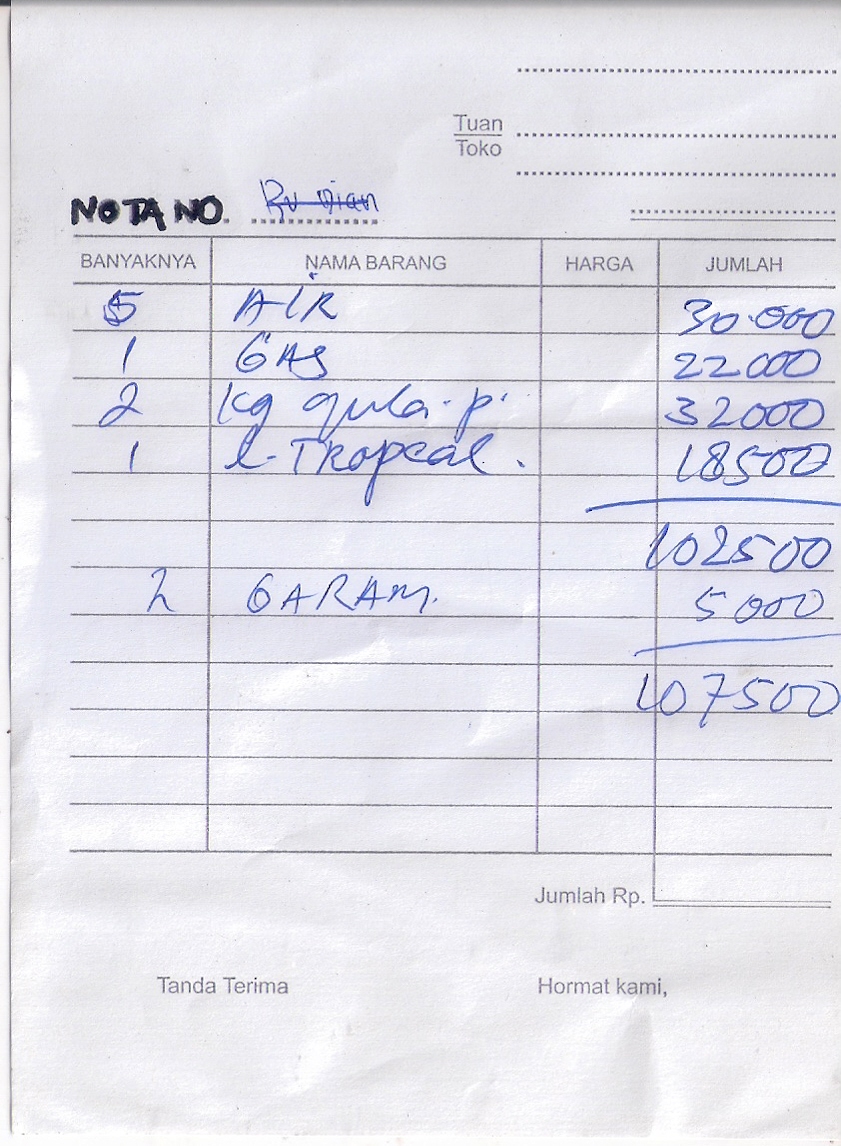 Tuan
Toko
NOTA NO.
BANYAKNYA NAMA BARANG HARGA JUMLAH
5 AIR 30.000
1 GAS 22000
2 kg gula. p. 32000
1 l. Tropcal. 18500
102500
2 GARAM. 5000
107500
Jumlah Rp.
Tanda Terima Hormat kami,